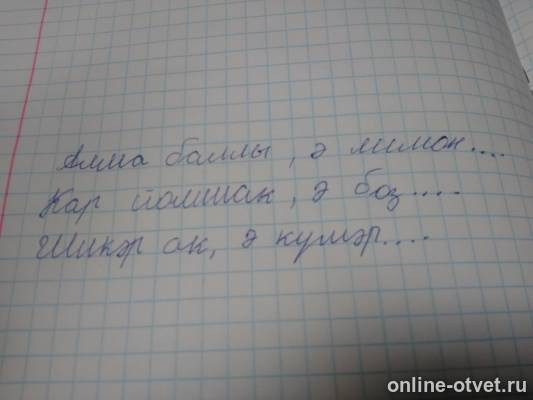 Алма баллы, ә лимон....
Кар йомшак, ә боз....
Шикәр ак, ә күмәр....
online-otvet.ru